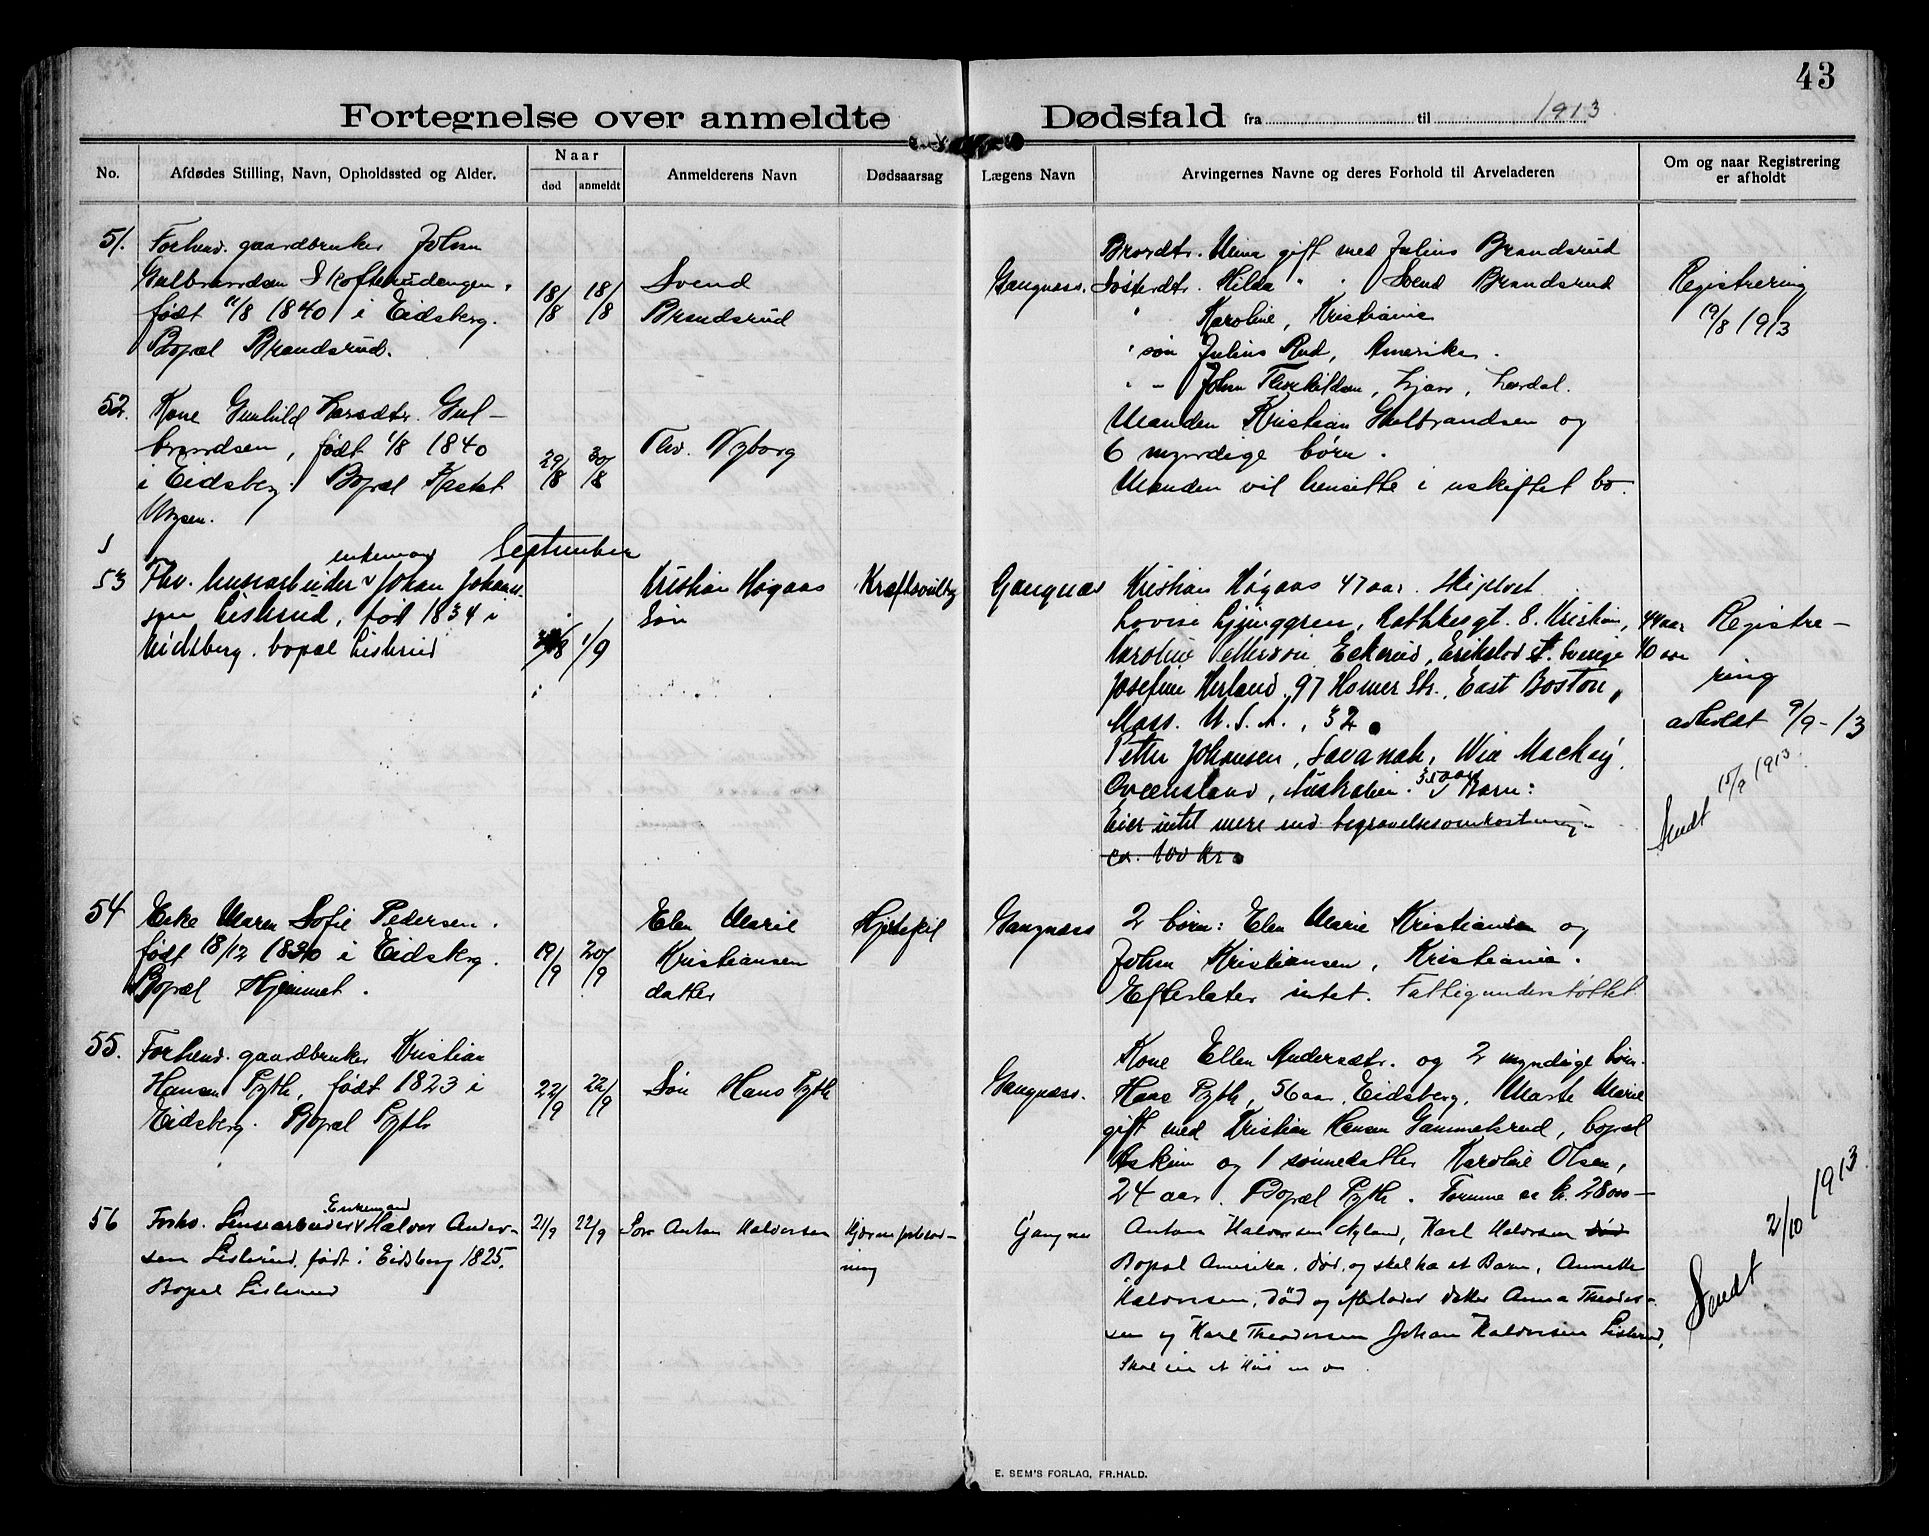 43
Fortegnelse over anmeldte Dødsfald fra til 1913
No.
Afdødes Stilling, Navn, Opholdssted og Alder.
Naar
død
anmeldt
Anmelderens Navn
Dødsaarsag
Lægens Navn
Arvingernes Navne og deres Forhold til Arveladeren
Om og naar Registrering
er afholdt
51.
Forhenv. gaardbruker Johan
Gulbrandsen Skofterudengen,
født 11/8 1840 i Eidsberg.
Bopæl Brandsrud.
18/8
18/8
Svend
Brandsrud
Gangnæss.
Brordtr. Mina gift med Julius Brandsrud
Søsterdtr. Hilda " " Svend Brandsrud
" Karoline, Kristiania
" søn Julius Rud, Amerika.
" - Johan Thorkildsen, Lærdal.
Registrering
19/8 1913
52.
Kone Gunhild Larsdtr. Gul-
brandsen, født 1/8 1840
i Eidsberg. Bopæl
Mysen.
29/8
30/8
Thv. Nyborg
Manden Kristian Gulbrandsen og
6 myndige børn.
Manden vil hensitte i uskiftet bo.
September
53
enkemand
Fhv. husarbeider v Johan Johan-
sen Lislerud, fød 1834 i
Eidsberg. bopæl Lislerud
1/9
Kristian Høgaas
Søn
Kræftsvulst
Gangnæs
Kristian Høgaas 47 aar. Skiptvet
Lovise Ljunggren, Rathkesgt. 8. Kristian, 44 aar
Karoline Petterson Ekerud, Erikstad st. Sverige 40 aar
Josefine Herland, 97 Homer Str., East Boston,
Mass. U. S. A., 32.
Petter Johansen, Savanah, Via Mackay,
Queensland, Australien. 35 aar Barn:
Eier intet mere end begravelsesomkostning-
ca. 100 kr.
Registre-
ring
avholdt 9/9-13
Sendt 15/9 1913.
54
Enke Maren Sofie Pedersen.
født 18/12 1830 i Eidsberg.
Bopæl Hjemmet.
19/9
20/9
Elen Marie
Kristiansen
datter
Hjertefeil
Gangnæss
2 børn: Elen Marie Kristiansen og
Johan Kristiansen, Kristiania.
Efterlater intet. Fattigunderstøttet
55.
Forhenv. gaardbruker Kristian
Hansen Pyth, født 1823 i
Eidsberg. Bopæl Pyth
22/9
22/9
Søn Hans Pyth
Gangnæss.
Kone Ellen Andersdtr. og 2 myndige børn.
Hans Pyth, 56 aar, Eidsberg, Marte Marie
gift med Kristian Hansen Gammelsrud, bopæl
Askim og 1 sønnedatter Karoline Olsen,
24 aar. Bopæl Pyth. Formue ca kr. 2800-
56
Enkemand
Forhv. Lensearbeider v Halvor Ander-
sen Lislerud, født i Eidsberg 1825.
Bopæl Lislerud
21/9
22/9
Søn Anton Halvorsen
Gangnæs
Anton Halvorsen Nyland, Karl Halvorsen død
Bopæl Amerika, død, og skal ha et Barn, Annette
Halvorsen, død og efterlader datter Anna Theodor-
sen og Karl Theodorsen Johan Halvorsen Lislerud,
Sendt 2/10 1913
E. SEM'S FORLAG, FR.HALD.